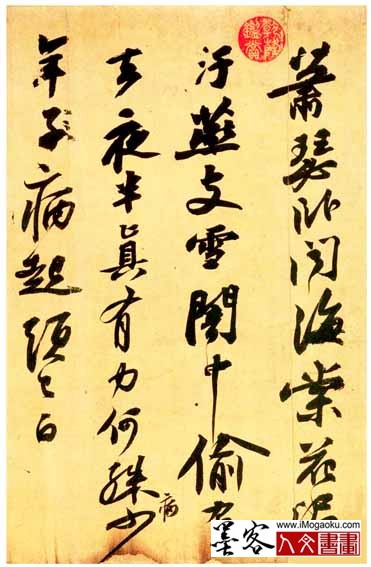 蕭瑟卧聞海棠花泥
汙燕支雪闇中偷負
去夜半真有力何殊少
病
年子病起頭已白
www.iMogaoku.com
墨客